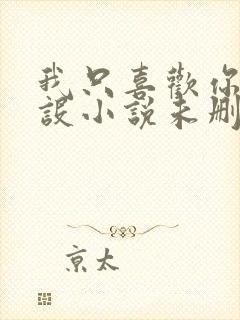 我只喜歡你
設小說未刪
京太